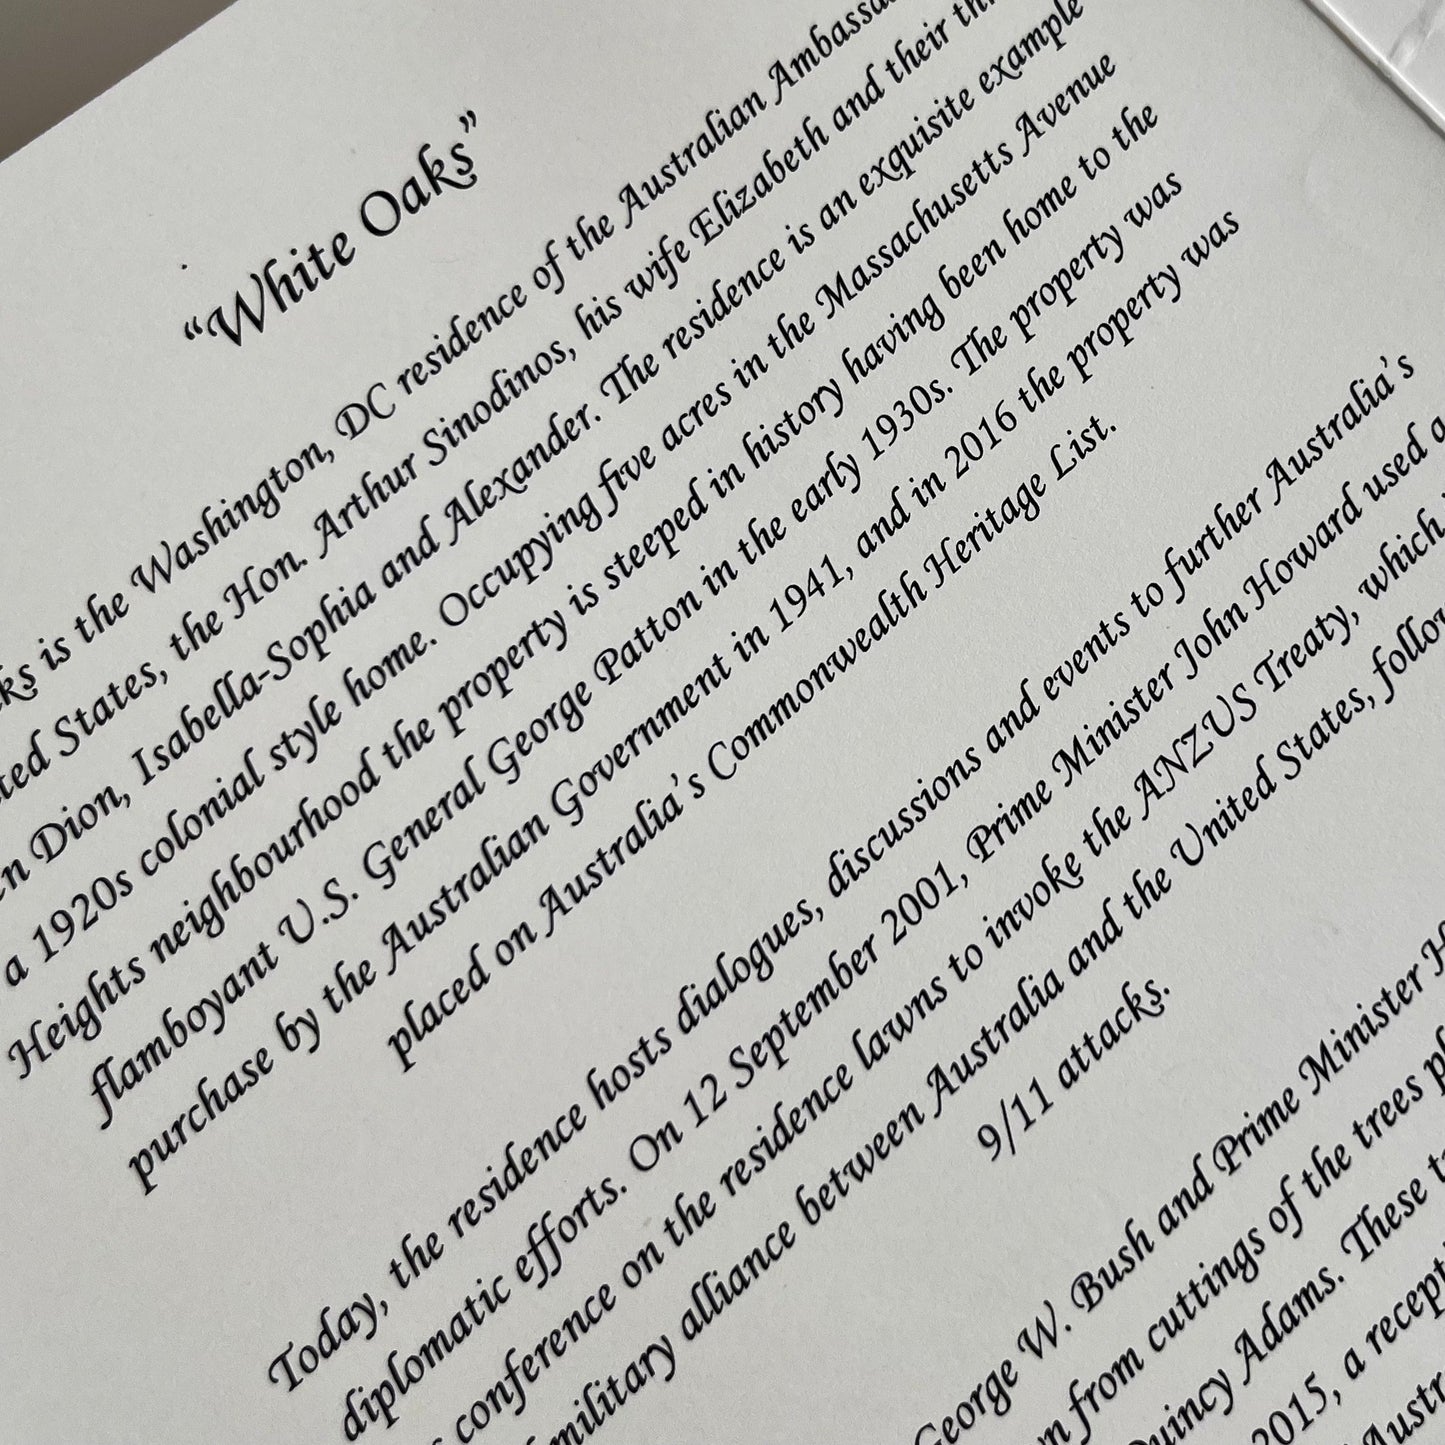 “White Oaks”
is the Washington, DC residence of the Australian
States, the Hon. Arthur Sinodinos, his wife Elizabeth and their
Dion, Isabella-Sophia and Alexander. The residence is an exquisite example
a 1920s colonial style home. Occupying five acres in the Massachusetts Avenue
Heights neighbourhood the property is steeped in history having been home to the
flamboyant U.S. General George Patton in the early 1930s. The property was
purchase by the Australian Government in 1941, and in 2016 the property was
placed on Australia’s Commonwealth Heritage List.
Today, the residence hosts dialogues, discussions and events to further Australia’s
diplomatic efforts. On 12 September 2001, Prime Minister John Howard used
conference on the residence lawns to invoke the ANZUS Treaty, which
military alliance between Australia and the United States,
9/11 attacks.
George W. Bush and Prime Minister
from cuttings of the trees
Quincy Adams. These
2015, a